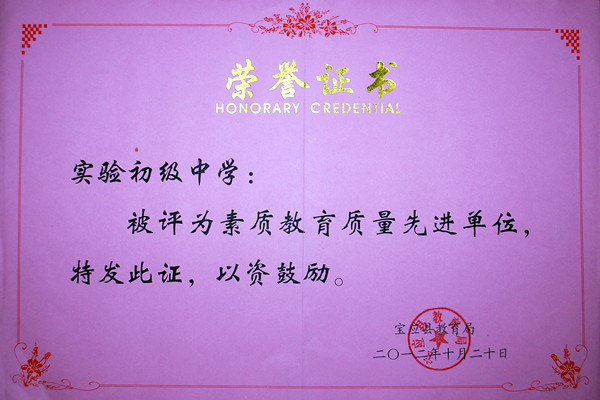 荣誉证书
HONORARY CREDENTIAL
实验初级中学：
被评为素质教育质量先进单位，
特发此证，以资鼓励。
宝应县教育局
二〇一二年十月二十日